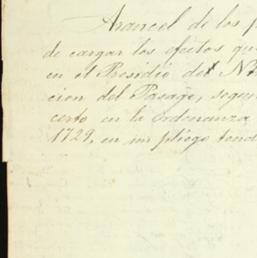 Arancel de los p
de cargar los efectos qu
en el Presidio de
cion del Pasage, segun
en la Ordenanza
1729, en un pliego